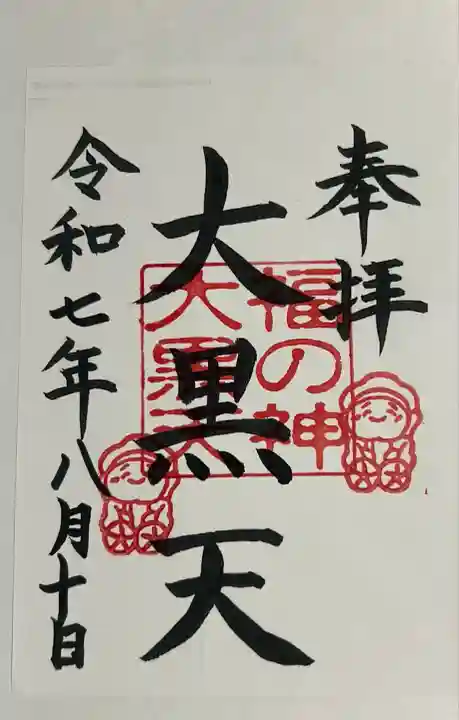 奉拝
大黒天
福の神
大黒天
令和七年八月十日